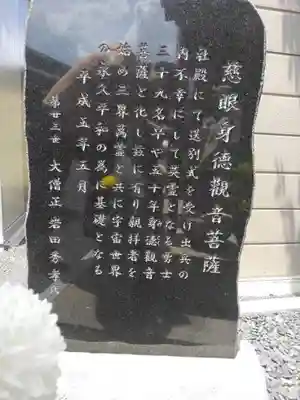 慈眼身德觀音菩薩
社殿にて送別式を受け出兵の
内不幸にして英霊となる勇士
三十九名早や五十年身德觀音
菩薩と化し茲に有り親拝者を
始め三界萬霊と共に宇宙世界
の永久平和の為に基礎となる
平成五年五月
第廿三世 大僧正 岩田秀孝